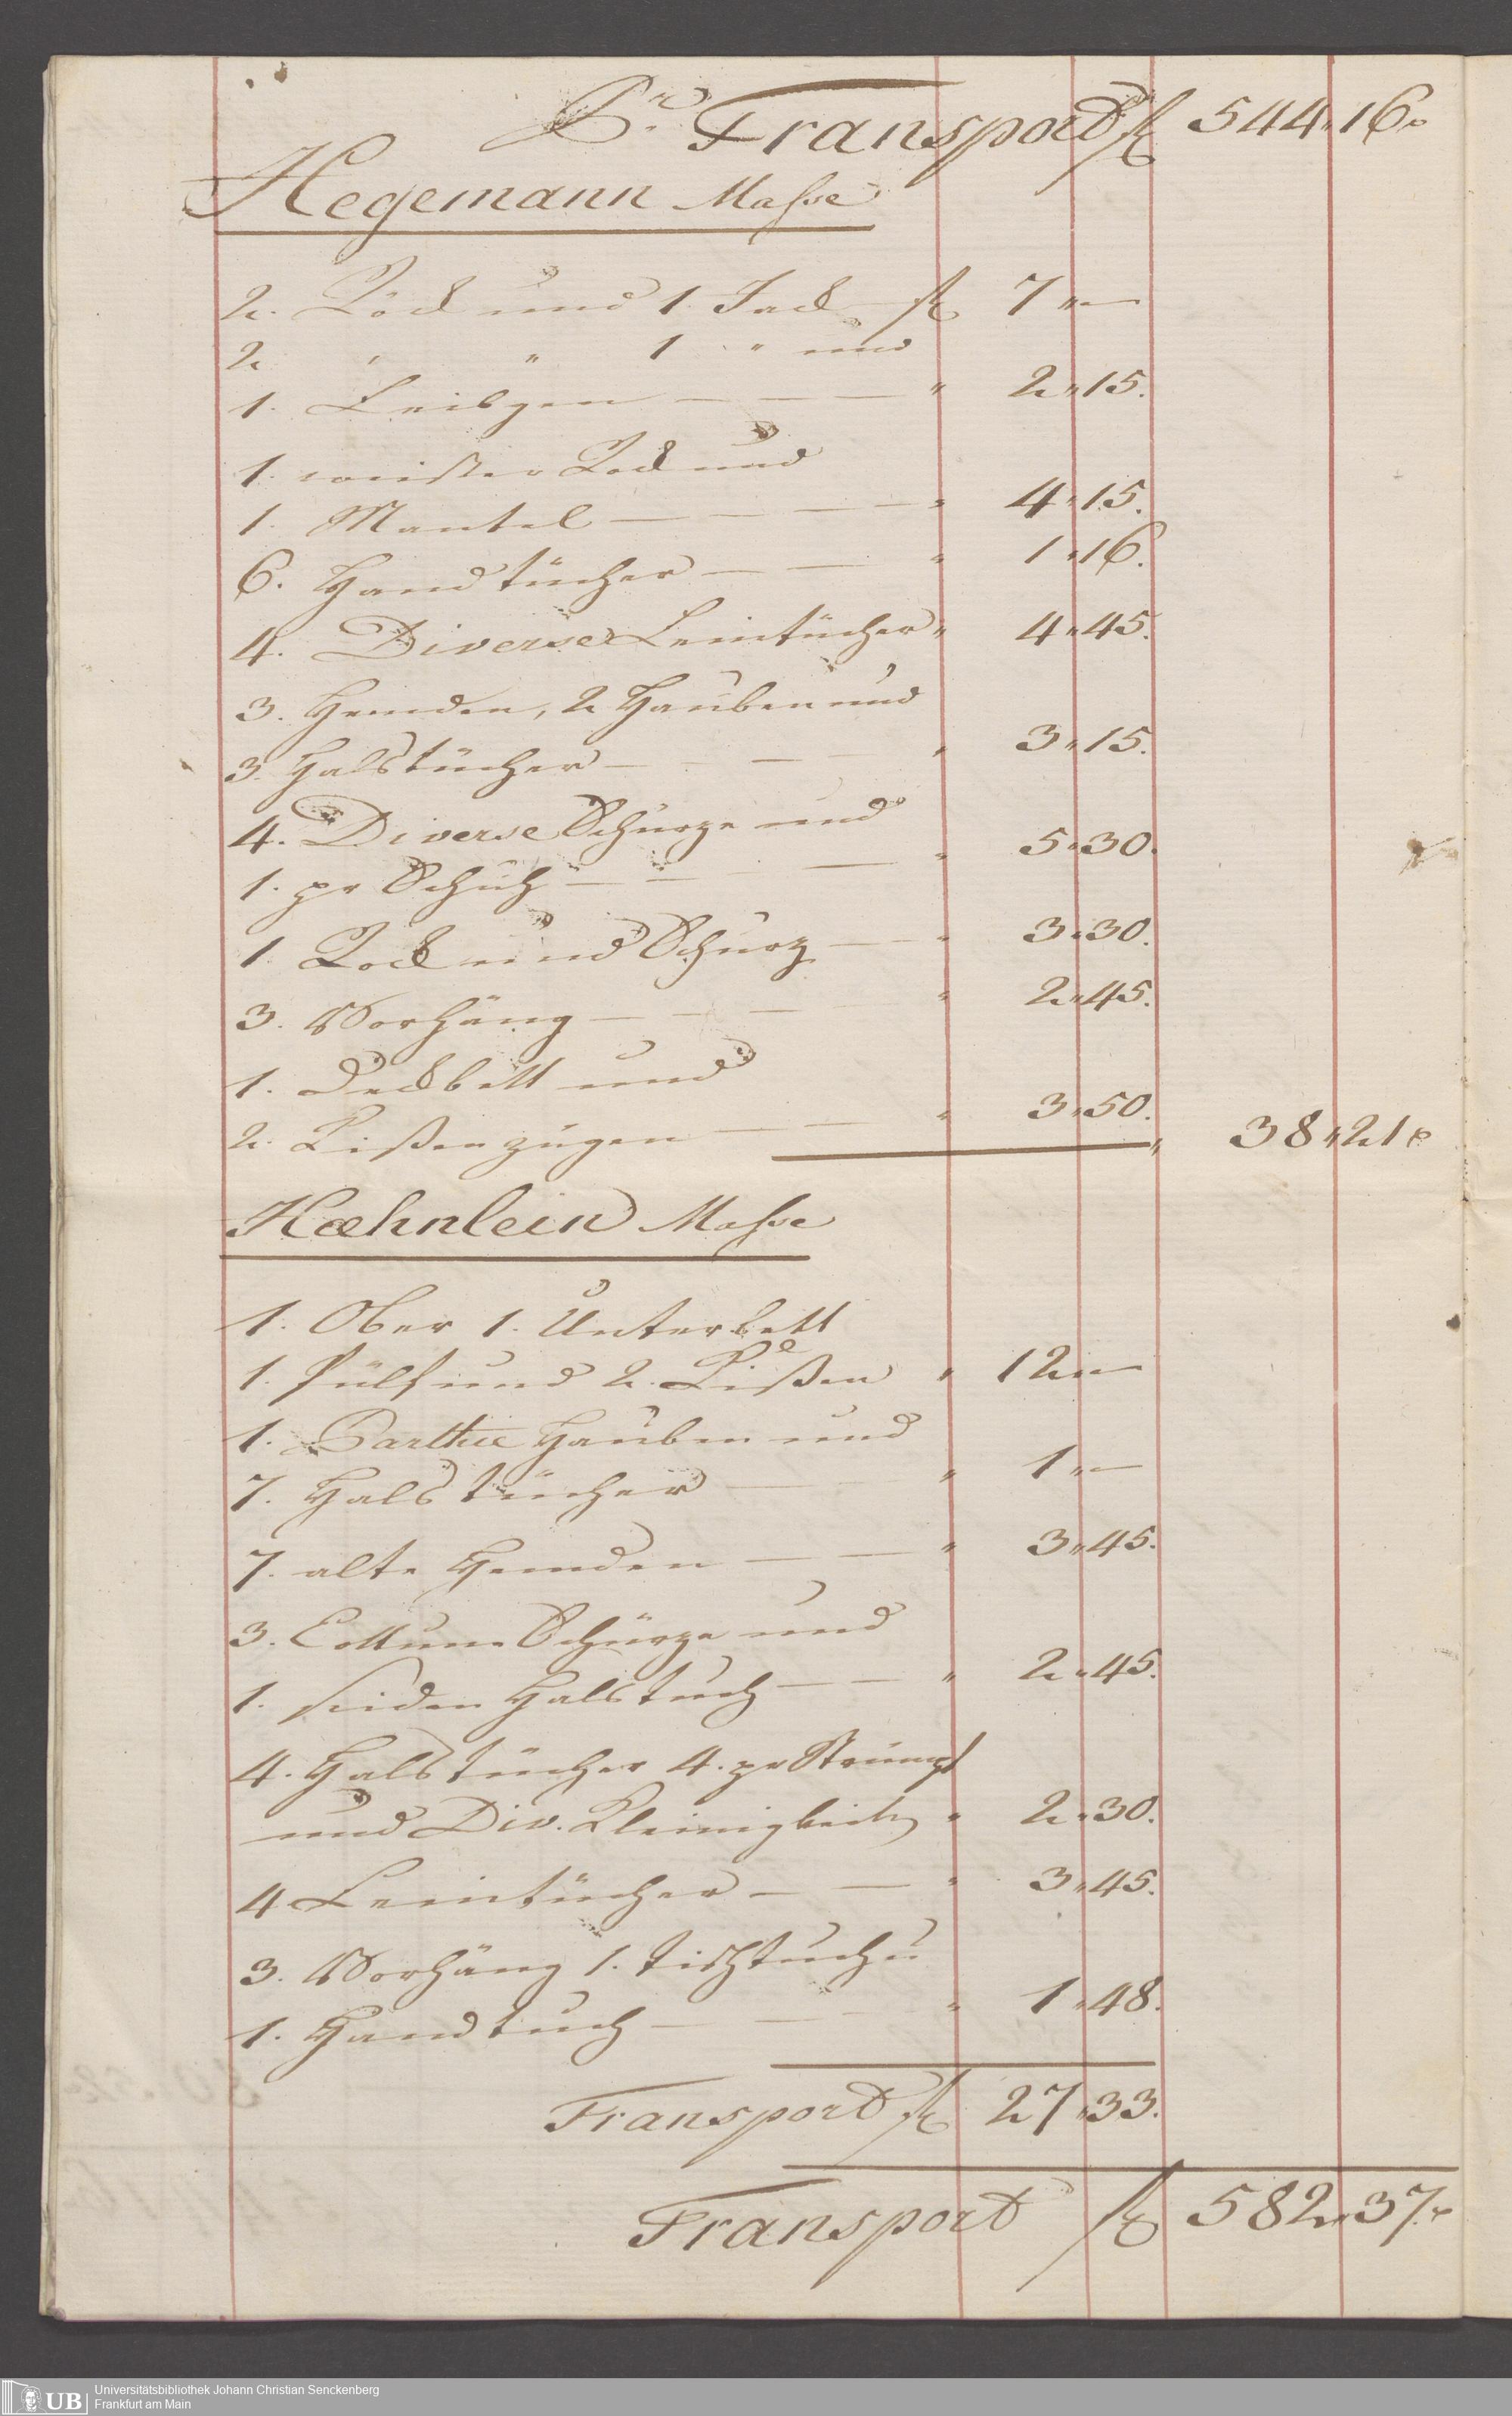 Pr. Transport fl 544 " 16 "
Hegemann Masse
2. Röck und 1. Jack fl 7 " —
2 " " 1 " und
1. Leibgen — — — " 2 " 15.
1. weisser Rock und
1. Mantel — — — — " 4 " 15.
6. Handtücher — — " 1 " 16.
4. Diverse Leintücher " 4 " 45.
3. Hemden, 2 Hauben und
3. Halstücher — — — " 3 " 15.
4. Diverse Schürze und
1. pr Schuh — — — — " 5 " 30.
1. Rock und Schurz — — " 3 " 30.
3. Vorhäng — — — " 2 " 45.
1. Deckbett und
2. Kißenzügen — — " 3 " 50. " 38 " 21 "
Hæhnlein Masse
1. Ober 1. Unterbett
1. Pülf und 2. Kißen " 12 " —
1. Parthie Hauben und
7. Halstücher — — " 1 " —
7. alte Hemden — — " 3 " 45.
3. Cottune Schürze und
1. seiden Halstuch — — " 2 " 45.
4. Halstücher 4. pr Strümpf
und Div. Kleinigkeiten " 2 " 30.
4 Leintücher — — " 3 " 45.
3. Vorhäng 1. Tischtuch u
1. Handtuch — — — " 1 " 48.
Transport fl 27 " 33.
Transport fl 582 " 37 "
UB Universitätsbibliothek Johann Christian Senckenberg
Frankfurt am Main